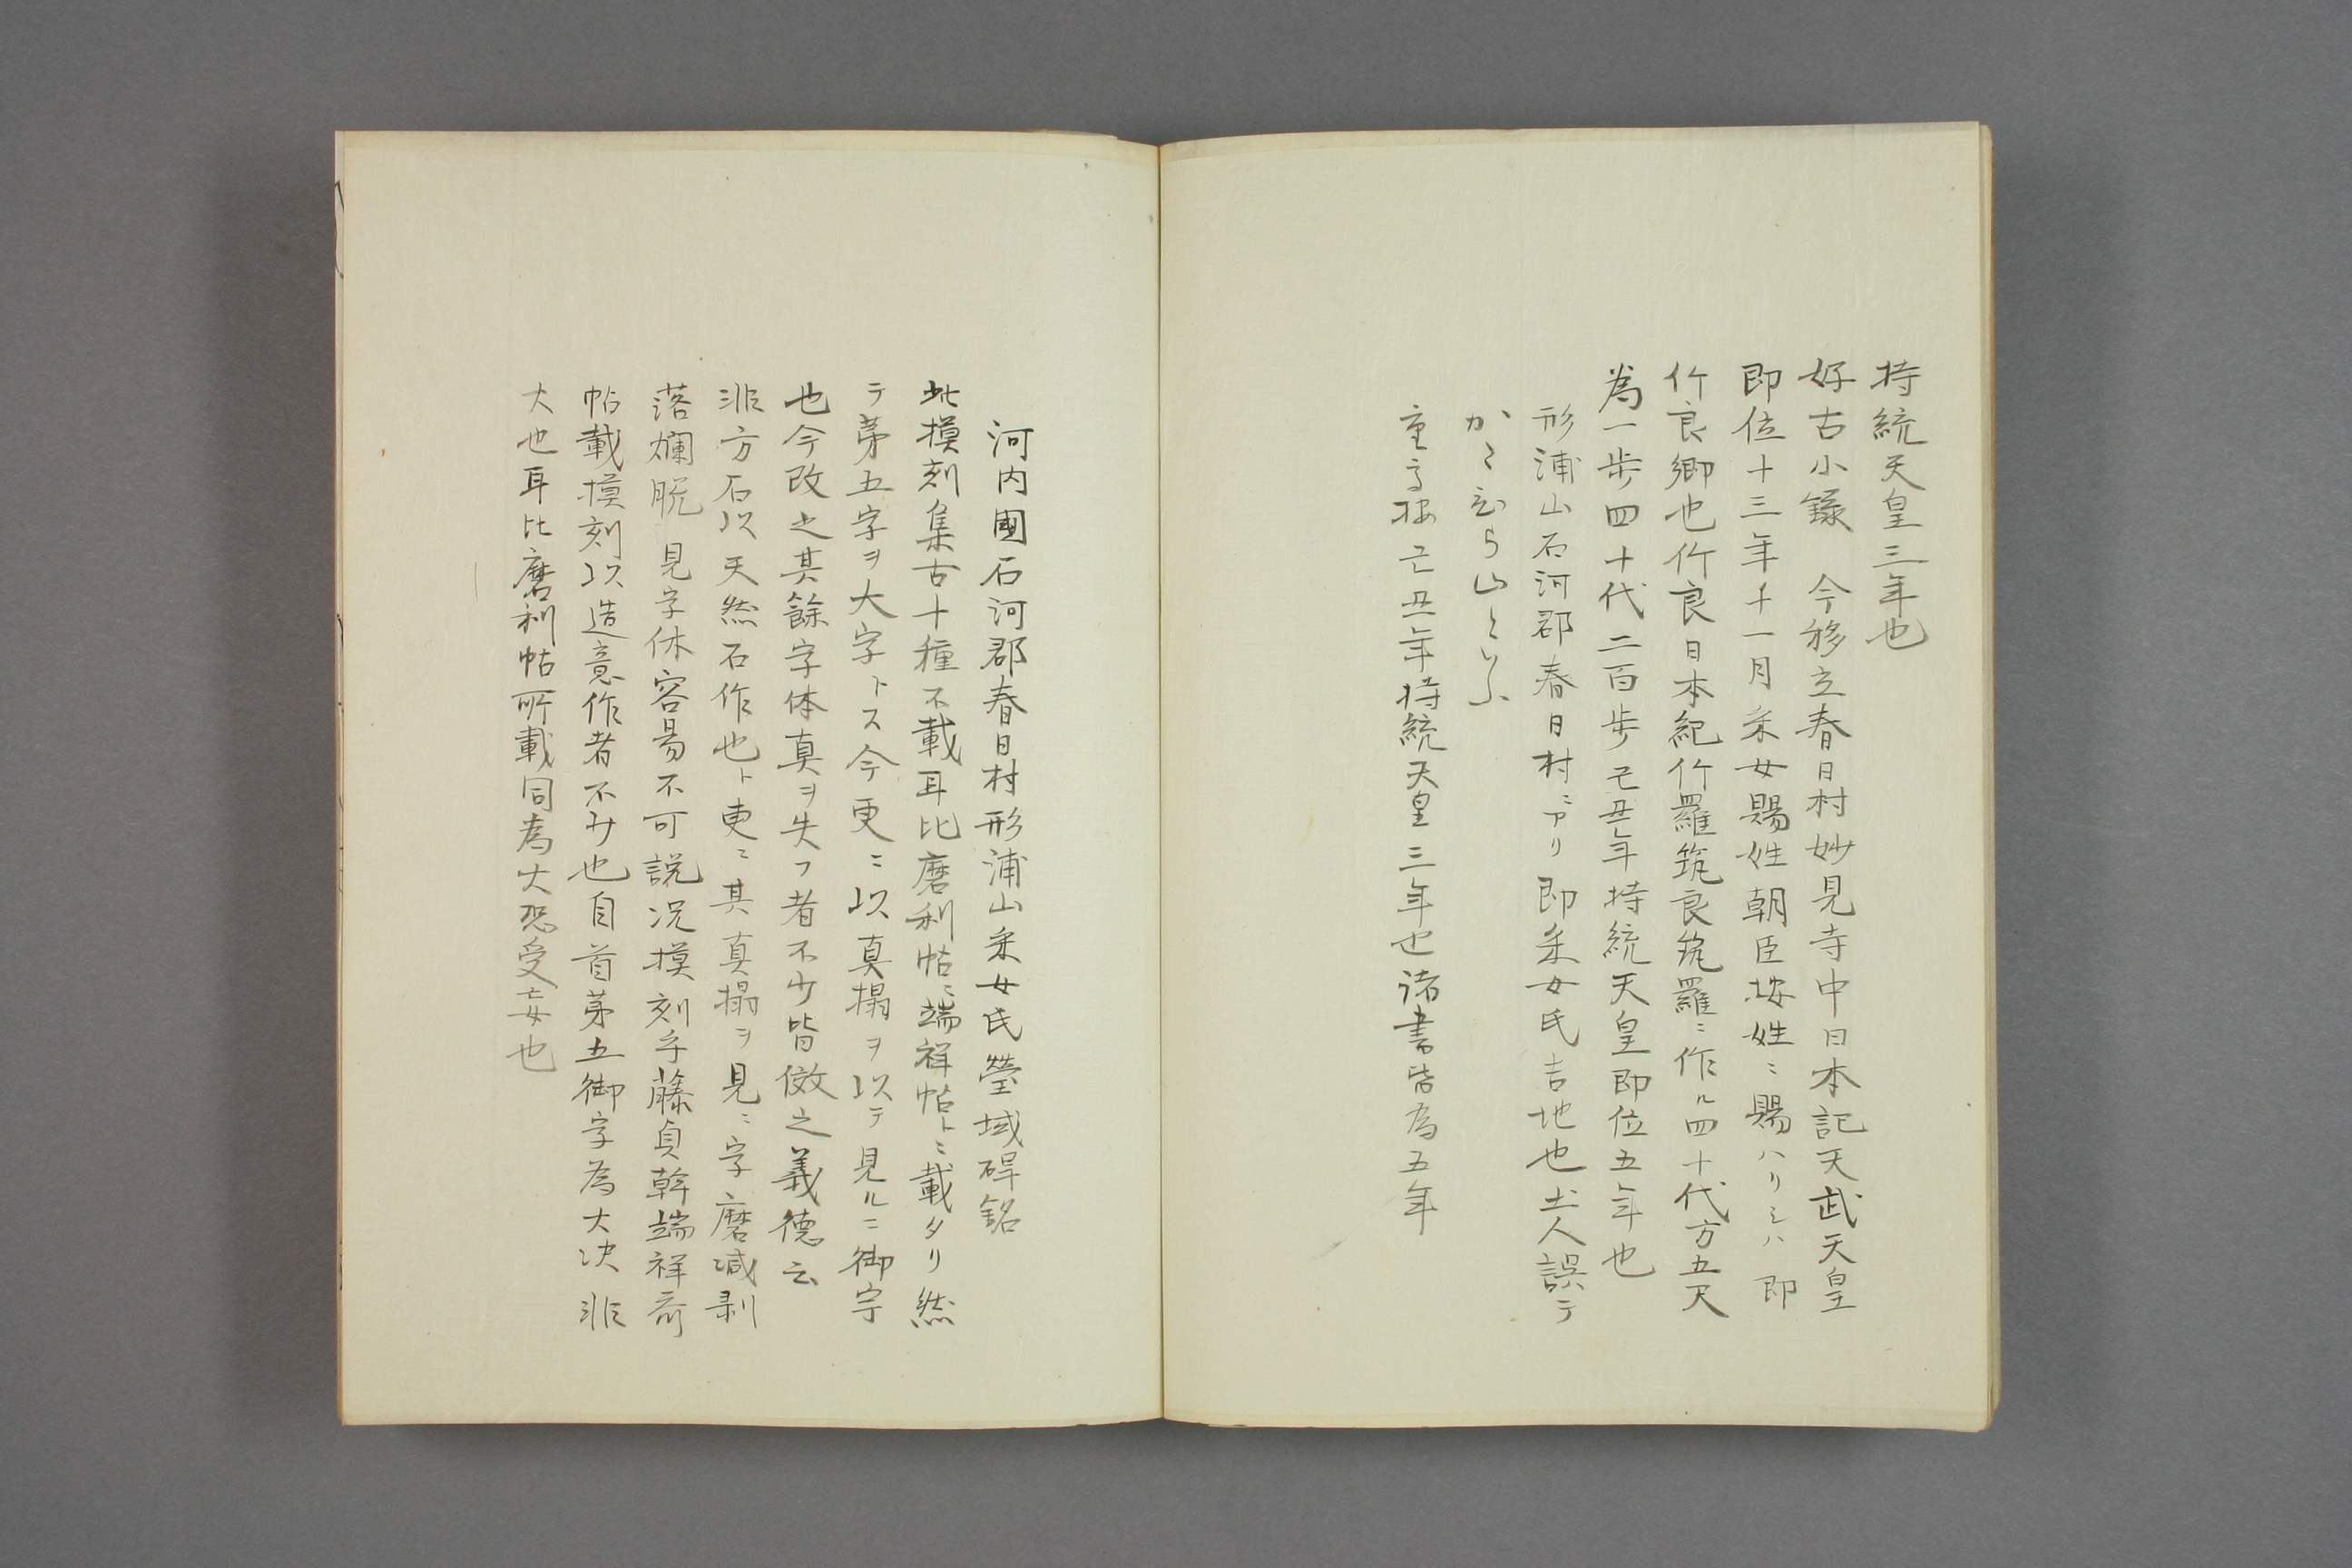 持統天皇三年也
好古小録　今移立春日村妙見寺中日本記天武天皇
即位十三年十一月采女賜姓朝臣按姓ニ賜ハリシハ即
竹良郷也竹良日本紀竹羅筑良筑羅ニ作ル四十代方五尺
為一歩四十代二百歩己丑年持統天皇即位五年也
形浦山石河郡春日村ニアリ即采女氏吉地也土人誤テ
かたむら山といふ
重高按己丑年持統天皇三年也諸書皆為五年
河内國石河郡春日村形浦山采女氏塋域碑銘
此摸刻集古十種不載耳比磨利帖ニ端祥帖トニ載タリ然
テ第五字ヲ大字トス今更ニ以真搨ヲ以テ見ルニ御字
也今改之其餘字体真ヲ失フ者不少皆倣之義徳云
非方石以天然石作也ト更ニ其真搨ヲ見ニ字磨滅剥
落爛脱見字体容易不可説况摸刻乎藤貞幹端祥斎
帖載摸刻以造意作者不少也自首第五御字為大决非
大也耳比磨利帖所載同為大恐受妄也